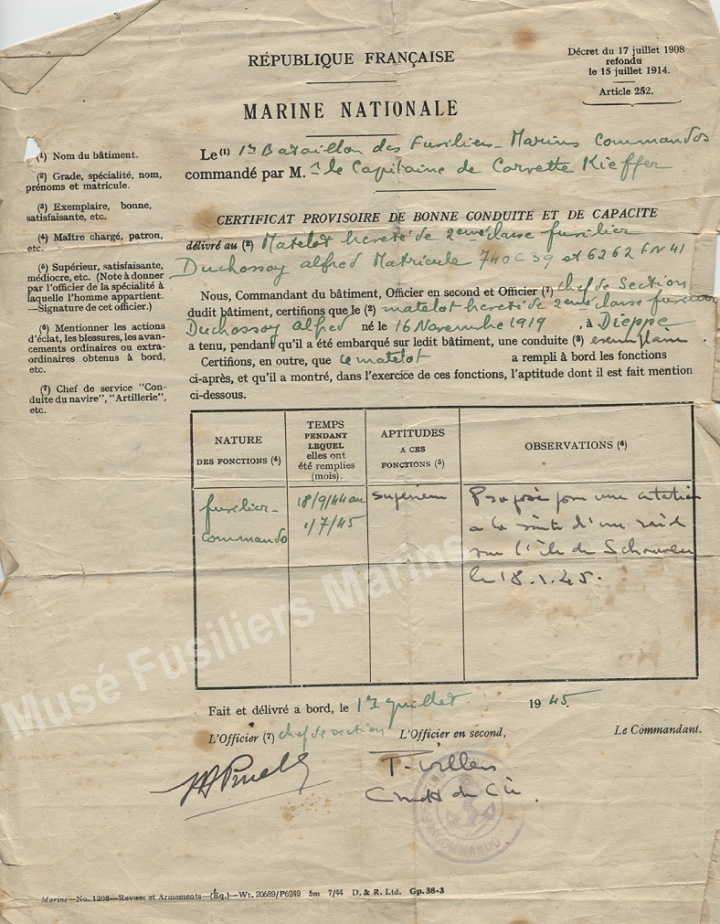 RÉPUBLIQUE FRANÇAISE
Décret du 17 juillet 1908
refondu
le 15 juillet 1914.
Article 252.
MARINE NATIONALE
Le (1) 1er Bataillon des Fusiliers-Marins Commandos
commandé par M. le Capitaine de Corvette Kieffer
(1) Nom du bâtiment.
(2) Grade, spécialité, nom,
prénoms et matricule.
(3) Exemplaire, bonne,
satisfaisante, etc.
(4) Maître chargé, patron,
etc.
(5) Supérieur, satisfaisante,
médiocre, etc. (Note à donner
par l'officier de la spécialité à
laquelle l'homme appartient.
—Signature de cet officier.)
(6) Mentionner les actions
d'éclat, les blessures, les avan-
cements ordinaires ou extra-
ordinaires obtenus à bord,
etc.
(7) Chef de service "Con-
duite du navire", "Artillerie",
etc.
CERTIFICAT PROVISOIRE DE BONNE CONDUITE ET DE CAPACITE
délivré au (2) Matelot breveté de 2eme classe fusilier
Duchossoy alfred Matricule 740 C 39 et 6262 FN 41
Nous, Commandant du bâtiment, Officier en second et Officier (7) chef de Section
dudit bâtiment, certifions que le (2) matelot breveté de 2eme classe fusilier
Duchossoy Alfred né le 16 Novembre 1919, à Dieppe
a tenu, pendant qu'il a été embarqué sur ledit bâtiment, une conduite (3) exemplaire.
Certifions, en outre, que ce matelot a rempli à bord les fonctions
ci-après, et qu'il a montré, dans l'exercice de ces fonctions, l'aptitude dont il est fait mention
ci-dessous.
NATURE
DES FONCTIONS (4)
TEMPS
PENDANT
LEQUEL
elles ont
été remplies
(mois).
APTITUDES
A CES
FONCTIONS (5)
OBSERVATIONS (6)
fusilier-
commando
18/9/44 au
1/7/45
Supérieur
Proposé pour une citation
a la suite d'un raid
sur l'île de Schouwen
le 18.1.45.
Musé Fusiliers Marins
Fait et délivré a bord, le 1er Juillet 1945
L'Officier (7) chef de section
L'Officier en second,
Le Commandant.
Cmdt du Cie.
Marine—No. 1208—Revues et Armements—(Eq.)—Wt. 20689/P6249 5m 7/44 D. & R. Ltd. Gp. 38-3